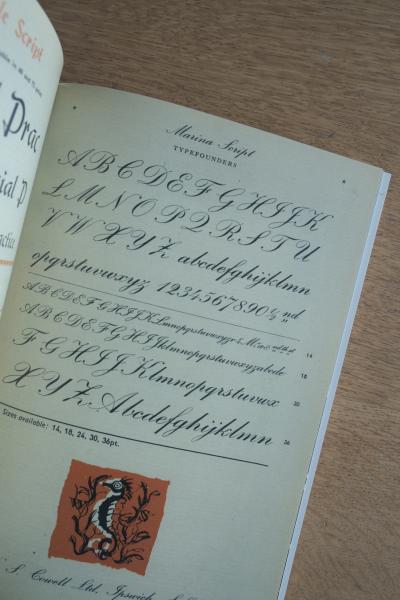 le Script
Prac
ial P
actice
Marina Script
TYPEFOUNDERS
ABCDEFGHIJK
LMNOPQRSTU
VWXYZ abcdefghijklmn
opqrstuvwxyz 1234567890
nd
ABCDEFGHIJKLmnopqrstuvwxyz
14
ABCDEFGHIJklmnopqrstuvwxyzabcde
18
FGHIJKlmnopqrstuvwx
30
XYZ Abcdefghijklmn
36
Sizes available: 14, 18, 24, 30, 36pt.
S. Cowell Ltd, Ipswich,